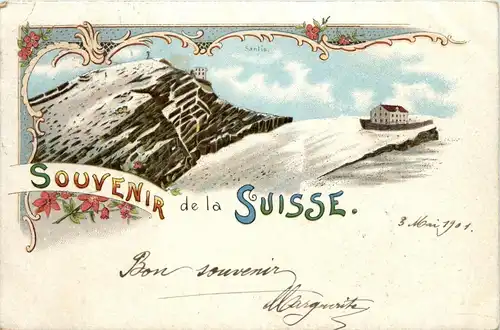 Säntis
SOUVENIR de la SUISSE.
3 Mai 1901.
Bon souvenir
Marguerite